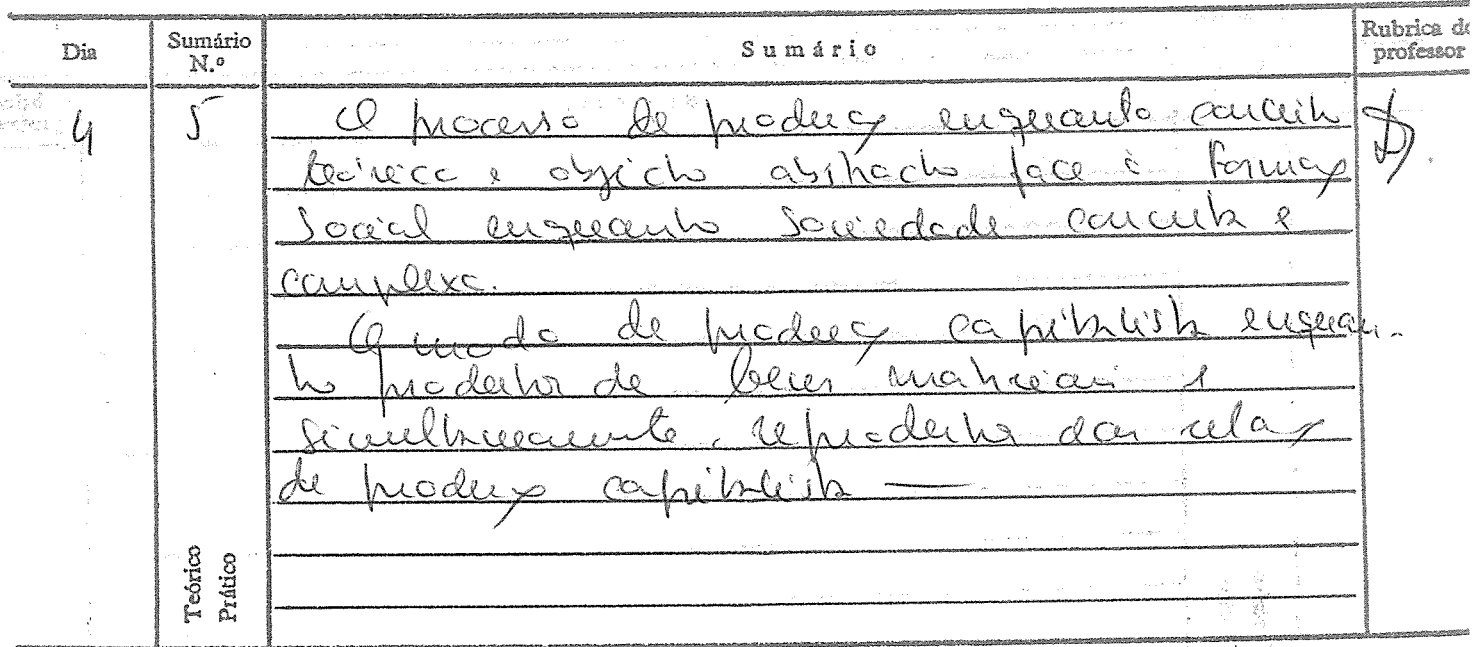 Dia Sumário N.º Sumário Rubrica do professor
4 5 O processo de produção enquanto conceito
teórico e objecto abstracto face à formação
social enquanto sociedade concreta e
complexa.
O modo de produção capitalista enquan-
to produtor de bens materiais e
simultaneamente, reprodutor das relações
de produção capitalista —
Teórico
Prático